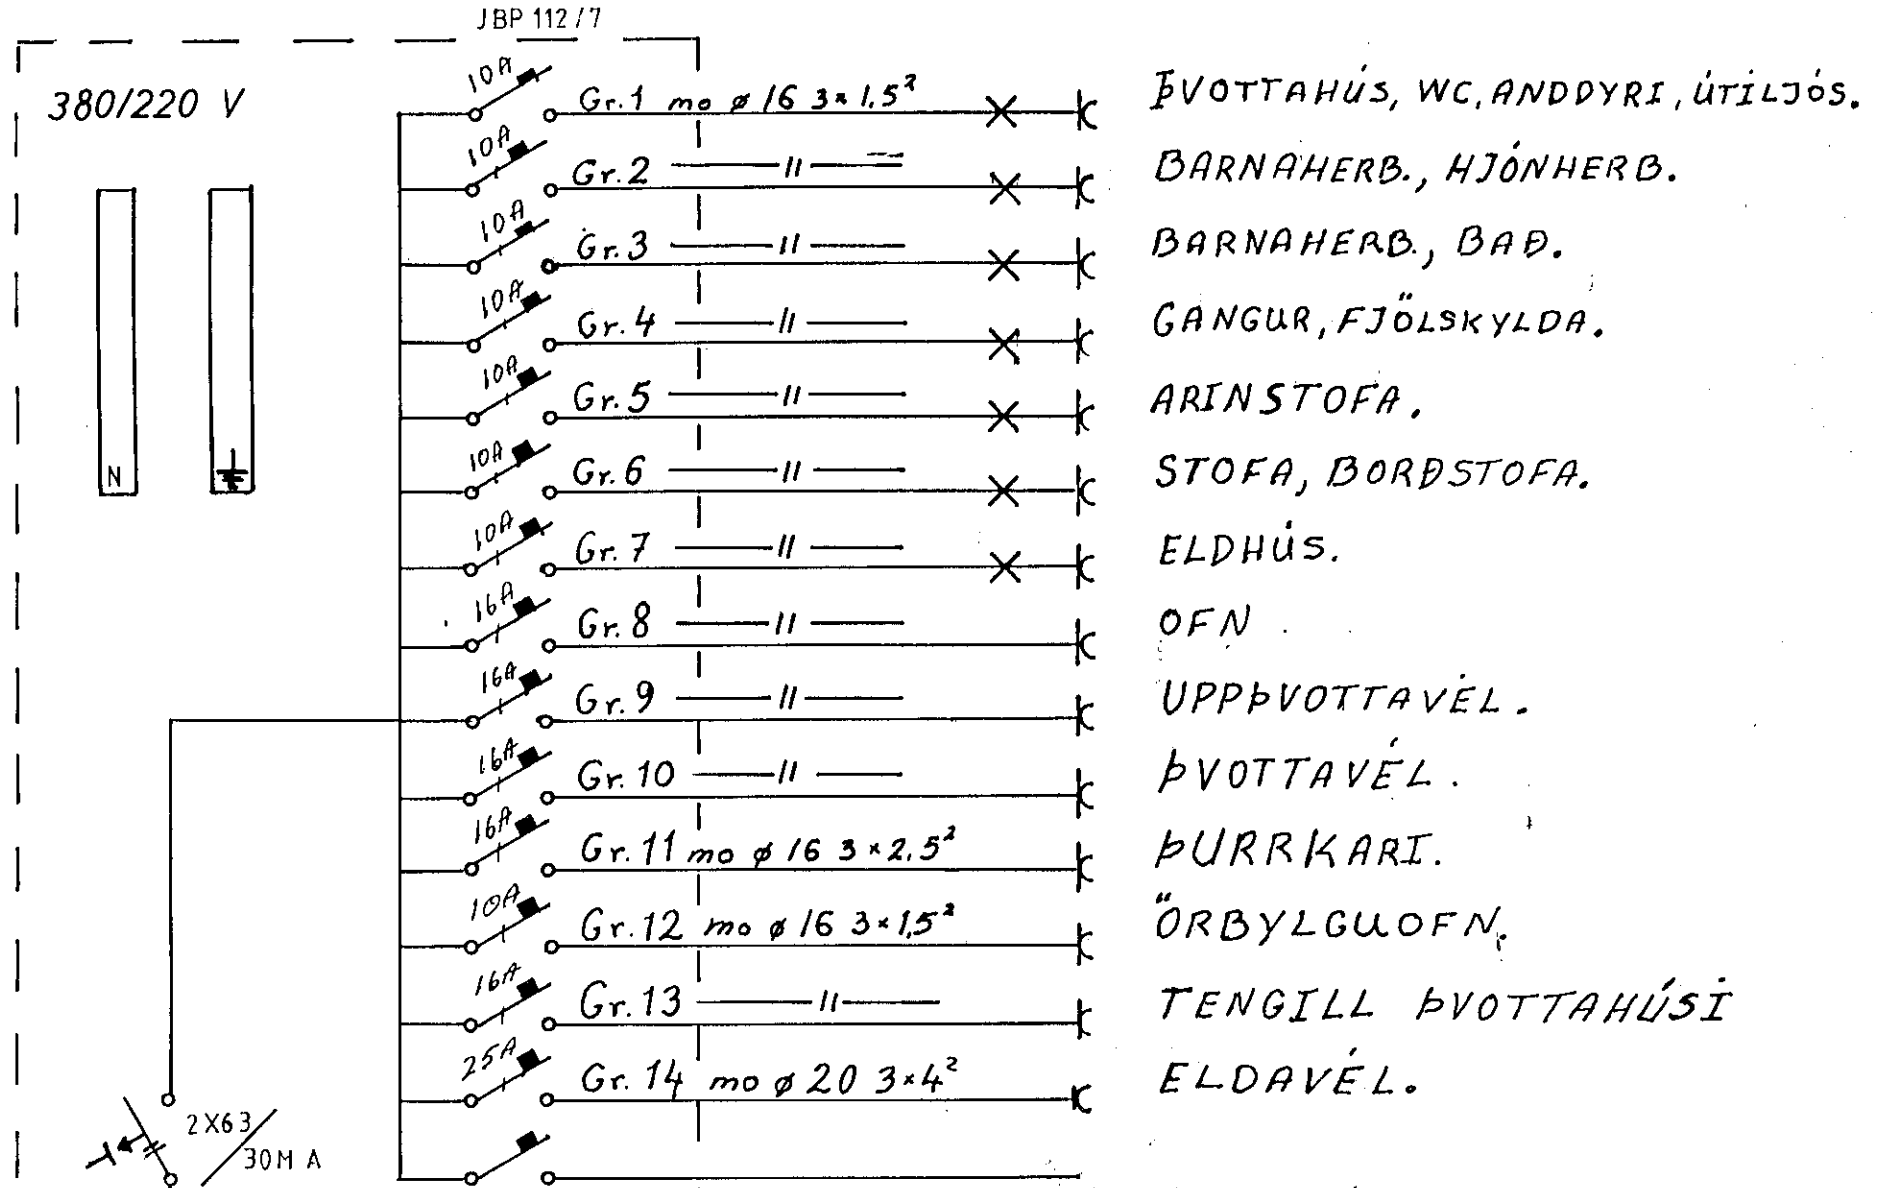 JBP 112/7
380/220 V
10A Gr.1 mo ø 16 3×1,5² ÞVOTTAHÚS, WC, ANDDYRI, ÚTILJÓS.
10A Gr.2 — 11 — BARNAHERB., HJÓNHERB.
10A Gr.3 — 11 — BARNAHERB., BAÐ.
10A Gr.4 — 11 — GANGUR, FJÖLSKYLDA.
10A Gr.5 — 11 — ARINSTOFA.
10A Gr.6 — 11 — STOFA, BORÐSTOFA.
N
10A Gr.7 — 11 — ELDHÚS.
16A Gr.8 — 11 — OFN
16A Gr.9 — 11 — UPPÞVOTTAVÉL.
16A Gr.10 — 11 — ÞVOTTAVÉL.
16A Gr.11 mo ø 16 3×2,5² ÞURRKARI.
10A Gr.12 mo ø 16 3×1,5² ÖRBYLGUOFN.
16A Gr.13 — 11 — TENGILL ÞVOTTAHÚSI
25A Gr.14 mo ø 20 3×4² ELDAVÉL.
2X63/30MA